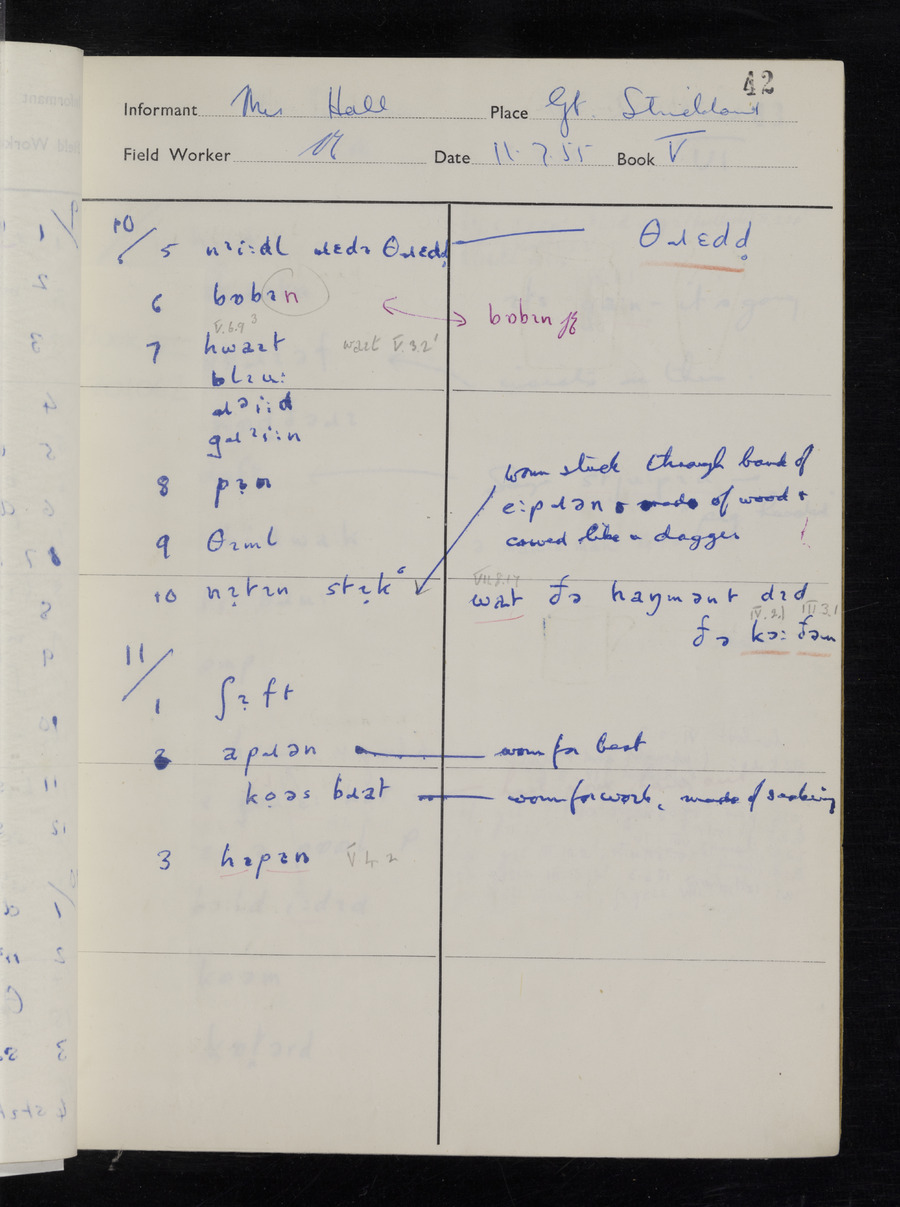 42
Informant Mrs Hall Place Gt. Strickland
Field Worker Date 11.7.55 Book V
10/ 5 nɪiːdl ɹɛdɪ θɹɛdd̥ θɹɛdd̥
6 bɒbɪn bɒbɪn
V.6.9 3
7 hwaɪt waɪt V.3.2
blɪuː
ɹəiːd
gɹɪiːn
8 pɪn
9 θɪml
10 nɪtɪn stɪk
worn stuck through band of
eːpɹən of wood &
carved like a dagger
VII.8.17
wat ðə haŋmənt dɪd
IV.2.1 III 3.1
ðə kəː ðəm
11/
1 ʃɪft
2 apɹən worn for best
kọəs bɹat worn for work, made of sacking
3 hapən V